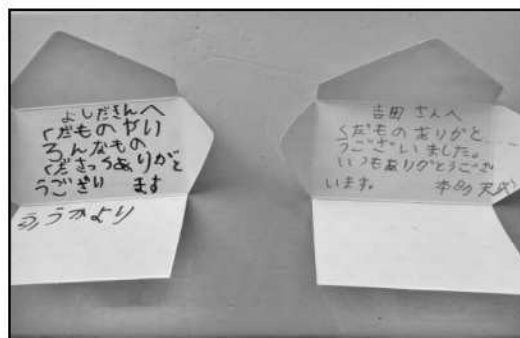 よしださんへ
くだものやい
ろんなもの
くださってありがと
うござい ます
ふうかより
吉田 さんへ
くだものありがと
うございました。
いつもありがとうござ
います。 本多